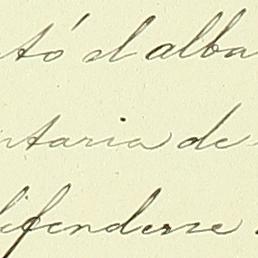 tó el alba
ntaria de
difenderse